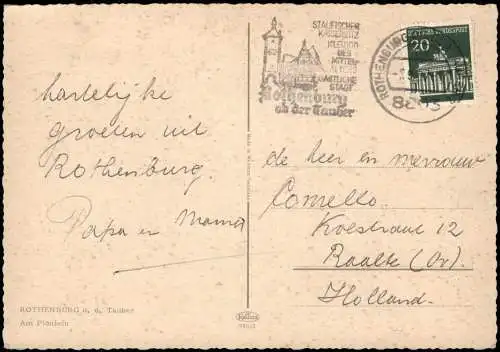 hartelijke
groeten uit
Rothenburg.
Papa en Mama
ROTHENBURG o. d. Tauber
Am Plönlein
STAUFISCHER
KAISERSITZ
KLEINOD
DES
MITTEL-
ALTERS
GASTLICHE
STADT
Rothenburg
ob der Tauber
ROTHENBURG
8803
DEUTSCHE BUNDESPOST
20
de heer en mevrouw
Comello.
Koestraat 12
Raalte (Ov.)
Holland.